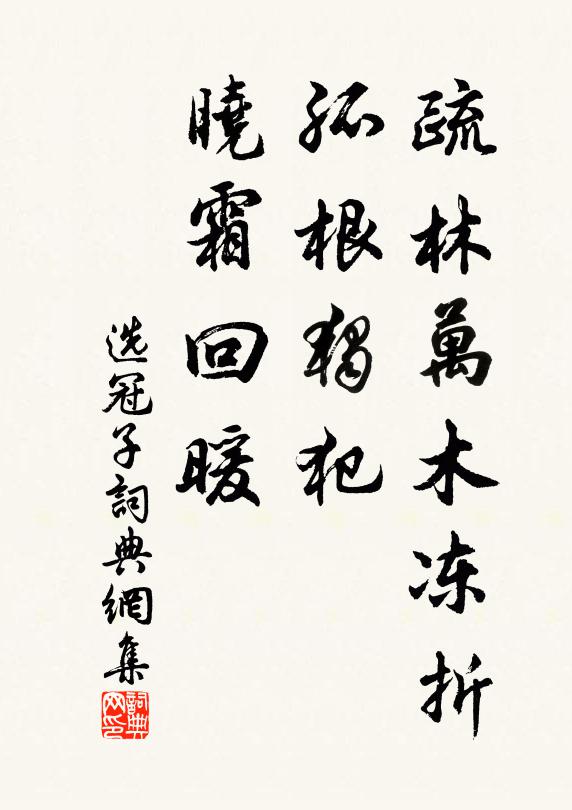 疏林萬木冻折
孤根獨犯
曉霜回暖
选冠子詞典網集
詞典网印